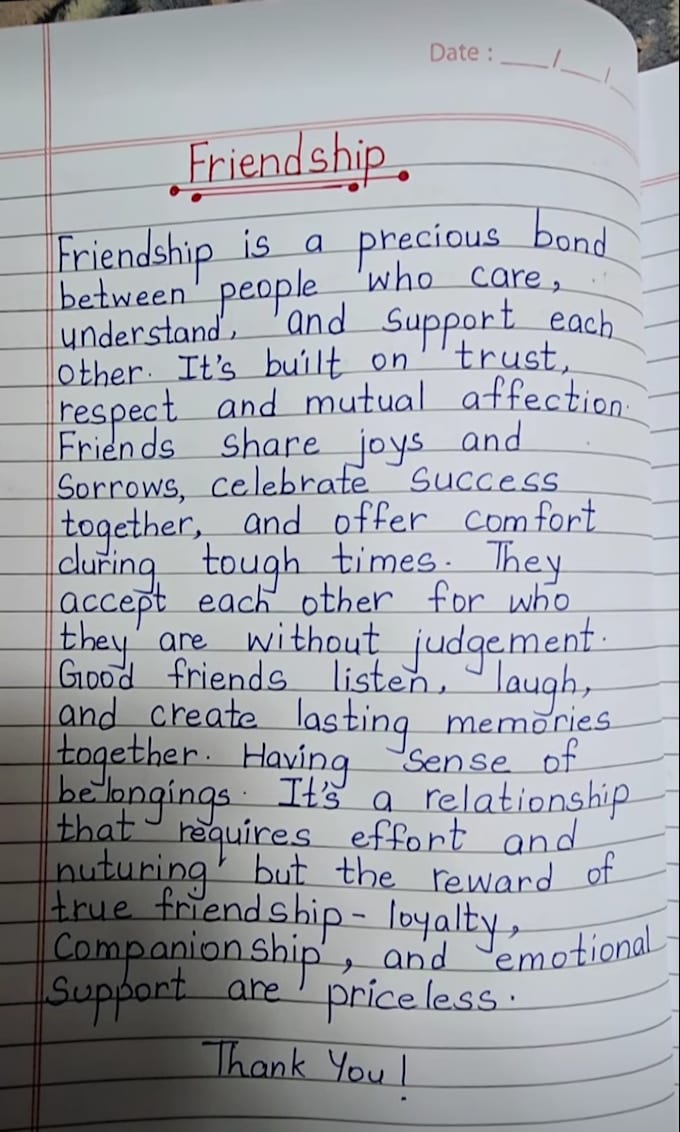 Date : ___/___/___
Friendship
Friendship is a precious bond
between people who care,
understand, and Support each
other. It's built on trust,
respect and mutual affection.
Friends share joys and
Sorrows, celebrate success
together, and offer comfort
during tough times. They
accept each other for who
they are without judgement.
Good friends listen, laugh,
and create lasting memories
together. Having sense of
belongings. It's a relationship
that requires effort and
nuturing but the reward of
true friendship - loyalty,
Companionship, and emotional
Support are priceless.
Thank You!